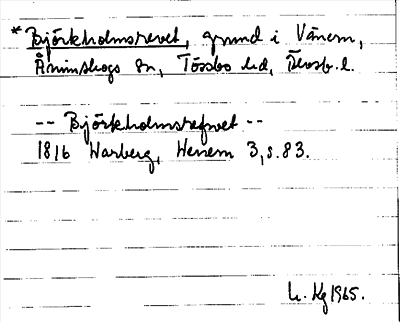 *Björkholmsrevet, grund i Vänern,
Ånimskogs sn, Tössbo hd, Älvsb. l.
-- Björkholmsrefwet --
1816 Warberg, Wenern 3, s. 83.
Kg 1965.